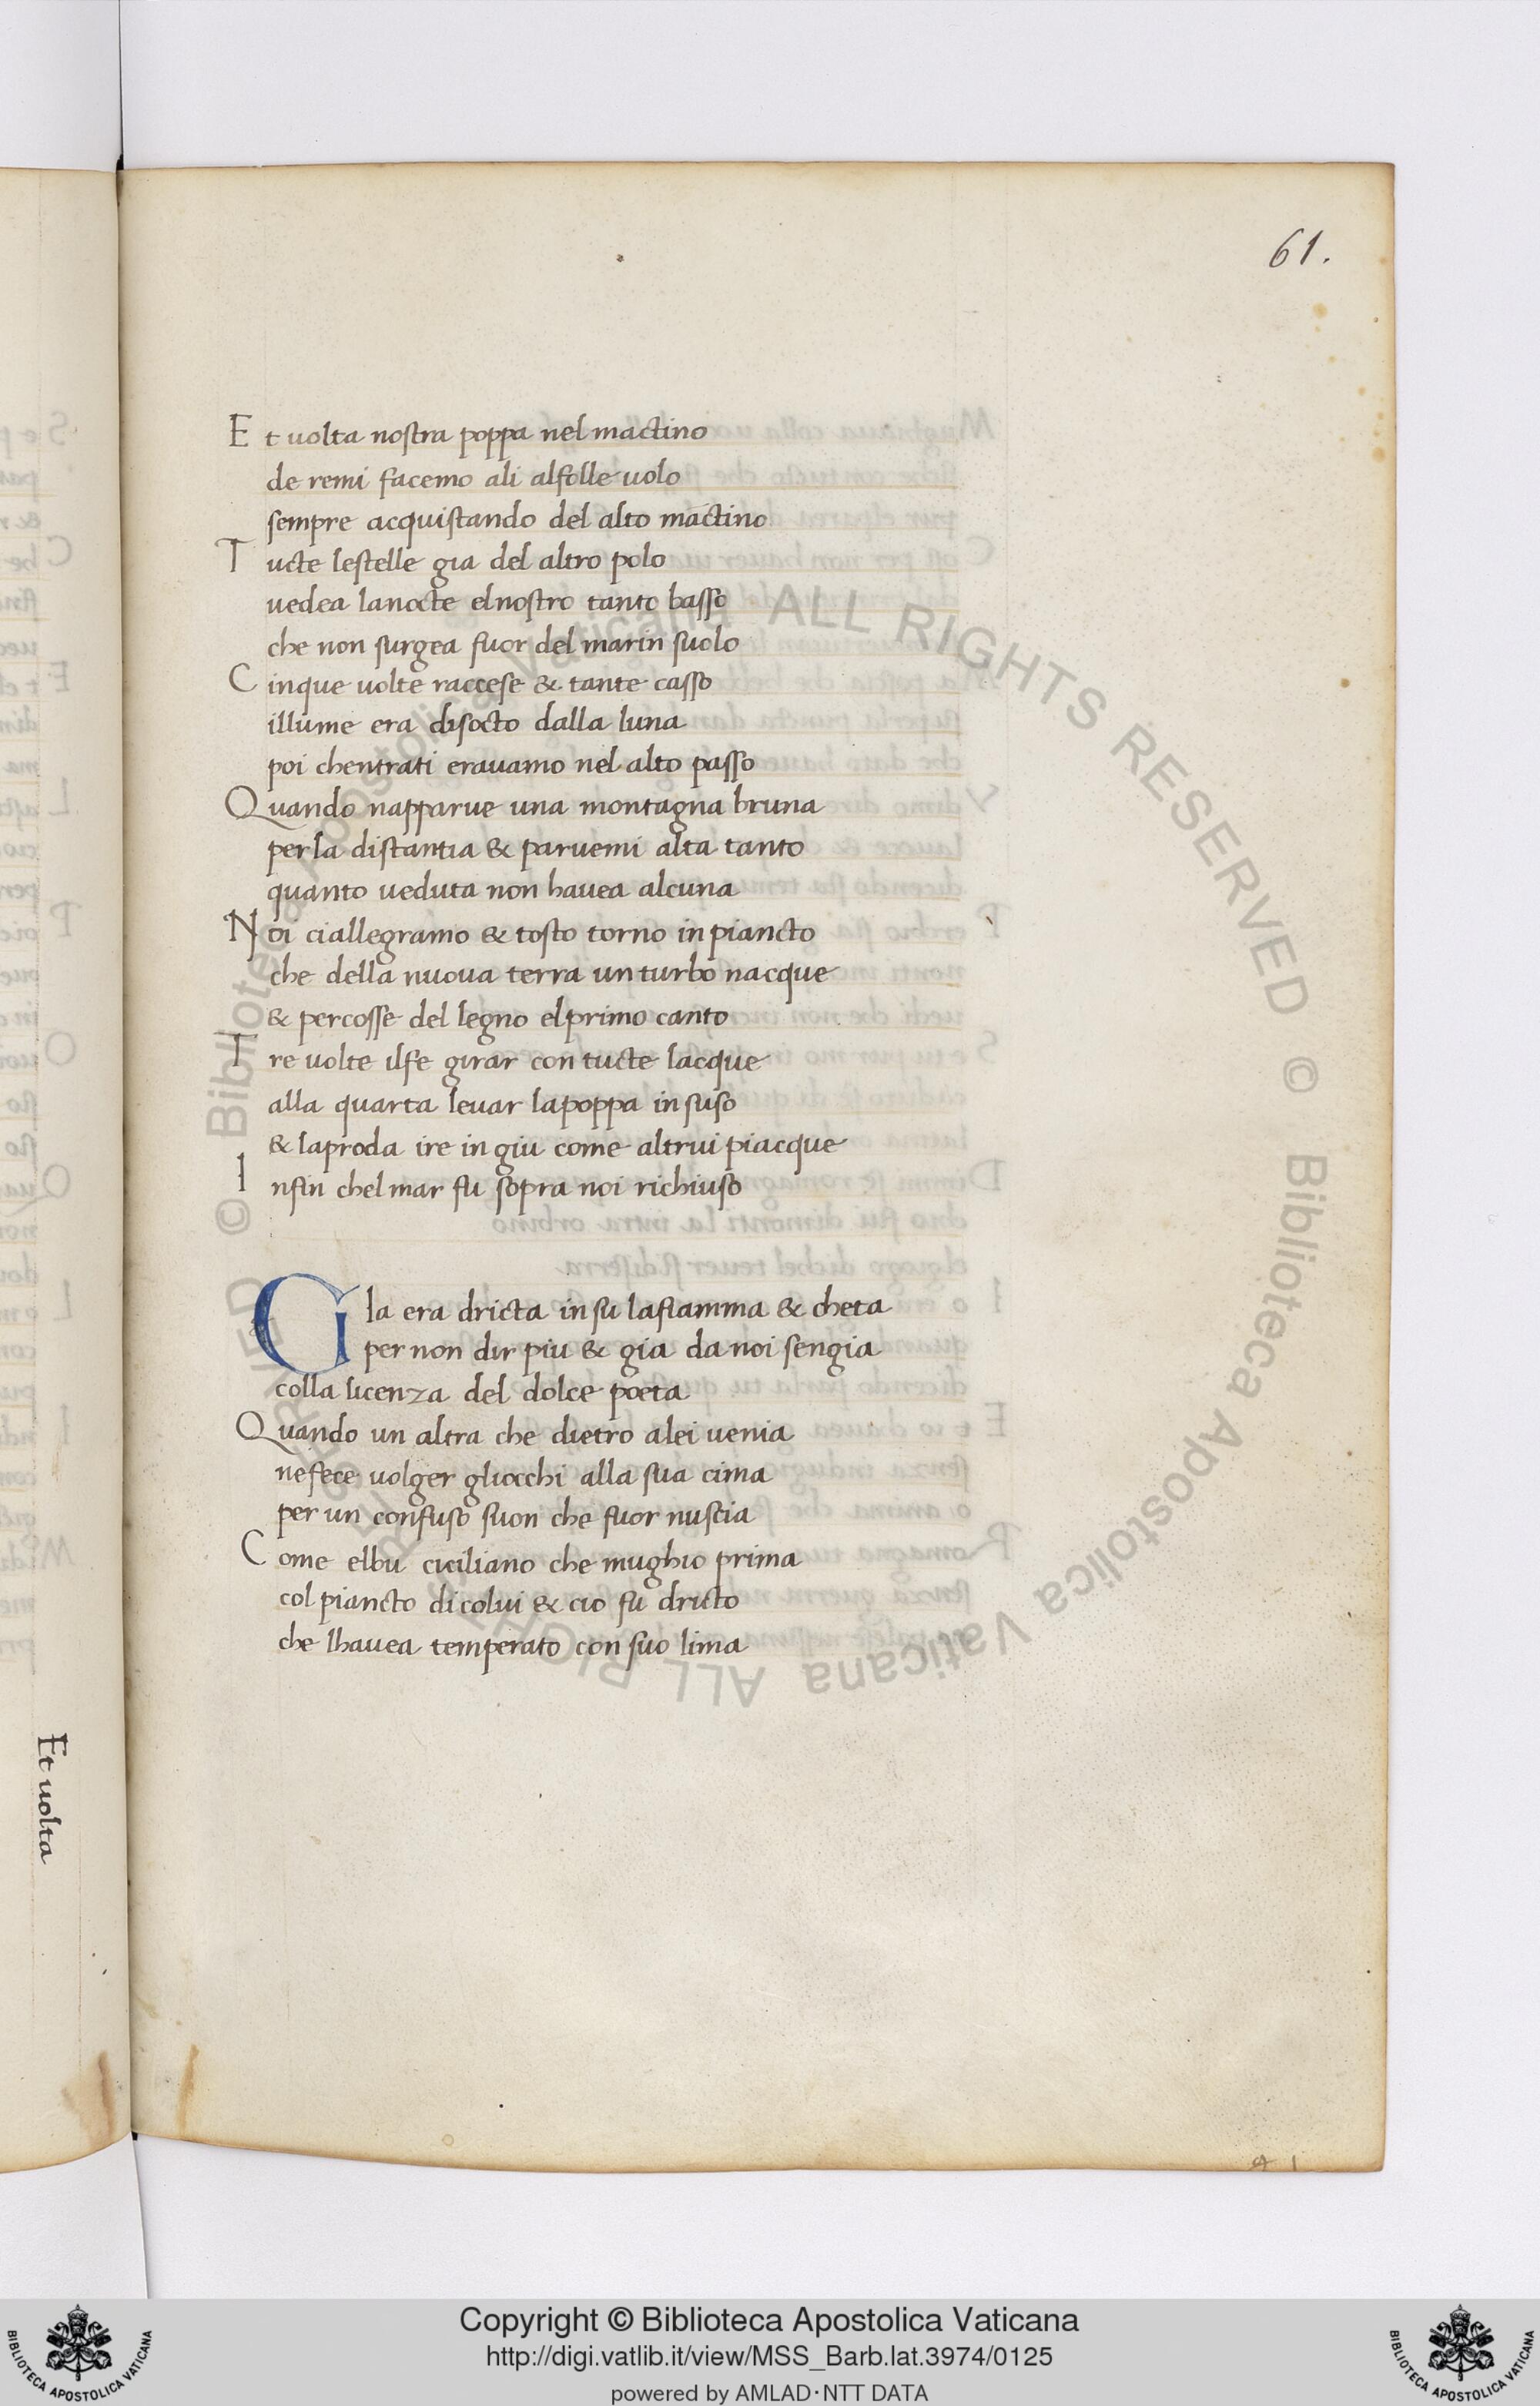 61.
Et uolta nostra poppa nel mactino
de remi facemo ali alfolle uolo
sempre acquistando del alto mactino
Tucte lestelle gia del altro polo
uedea lanocte elnostro tanto basso
che non surgea fuor del marin suolo
Cinque uolte raccese & tante casso
illume era disocto dalla luna
poi chentrati erauamo nel alto passo
Quando napparue una montagna bruna
perla distantia & paruemi alta tanto
quanto ueduta non hauea alcuna
Noi ciallegramo & tosto torno in piancto
che della nuoua terra un turbo nacque
& percosse del legno elprimo canto
Tre uolte ilfe girar con tucte lacque
alla quarta leuar lapoppa in suso
& laproda ire in giu come altrui piacque
Infin chel mar fu sopra noi richiuso
Gia era dricta in su lafiamma & cheta
per non dir piu & gia da noi sengia
colla licenza del dolce poeta
Quando un altra che dietro alei uenia
nefece uolger gliocchi alla sua cima
per un confuso suon che fuor nuscia
Come elbu ciciliano che mughio prima
col piancto di colui & cio fu dricto
che lhauea temperato con suo lima
Et uolta
© Biblioteca Apostolica Vaticana ALL RIGHTS RESERVED © Biblioteca Apostolica Vaticana ALL RIGHTS RESERVED
Copyright © Biblioteca Apostolica Vaticana
http://digi.vatlib.it/view/MSS_Barb.lat.3974/0125
powered by AMLAD·NTT DATA
BIBLIOTECA APOSTOLICA VATICANA
BIBLIOTECA APOSTOLICA VATICANA